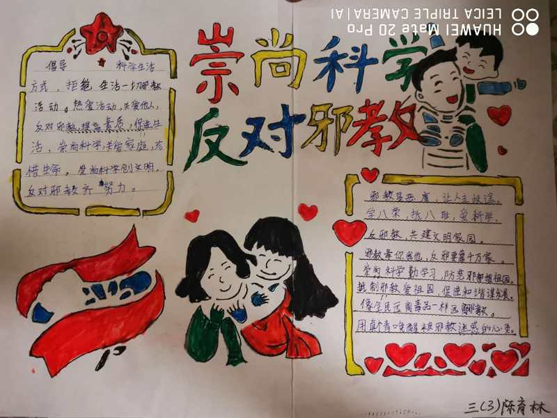 崇尚科学
反对邪教
倡导 科学生活
方式，拒绝生活一切邪教
活动。热爱活动，关爱他人，
反对邪教，提高素质，促进生
活，崇尚科学，关爱家庭，珍
惜生命，崇尚科学创文明，
反对邪教齐努力。
邪教是恶魔，让人走极端，
学八荣，抵八耻，爱科学，
反邪教，共建文明家园，
邪教害你害他，反邪靠千万家，
崇尚科学勤学习，防范邪教
抵制邪教爱祖国，促进和谐谋发展，
像个远离毒品一样远离邪教，
用真个 邪教 的心灵。
三(3)陈育林
HUAWEI Mate 20 Pro
LEICA TRIPLE CAMERA | AI